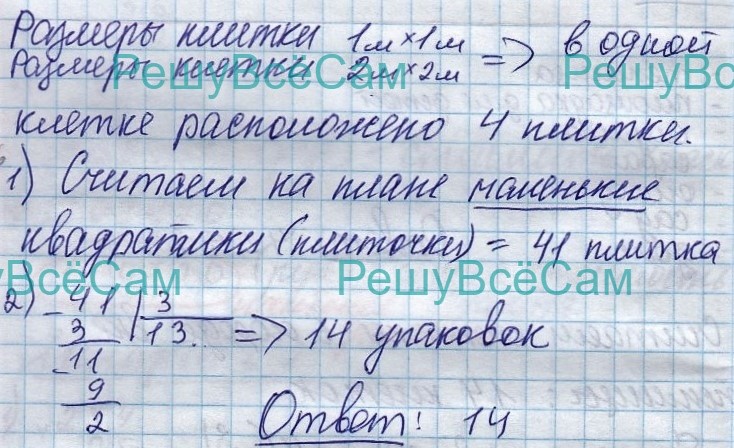 Размеры плитки 1м×1м => в одной
Размеры клетки 2м×2м
РешуВсёСам РешуВсёСам
клетке расположено 4 плитки.
1) Считаем на плане маленькие
квадратики (плиточки) = 41 плитка
РешуВсёСам РешуВсёСам
2) 41 | 3
3 13. => 14 упаковок
11
9
2 Ответ: 14